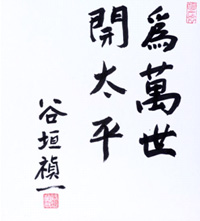 爲萬世
開太平
谷垣禎一